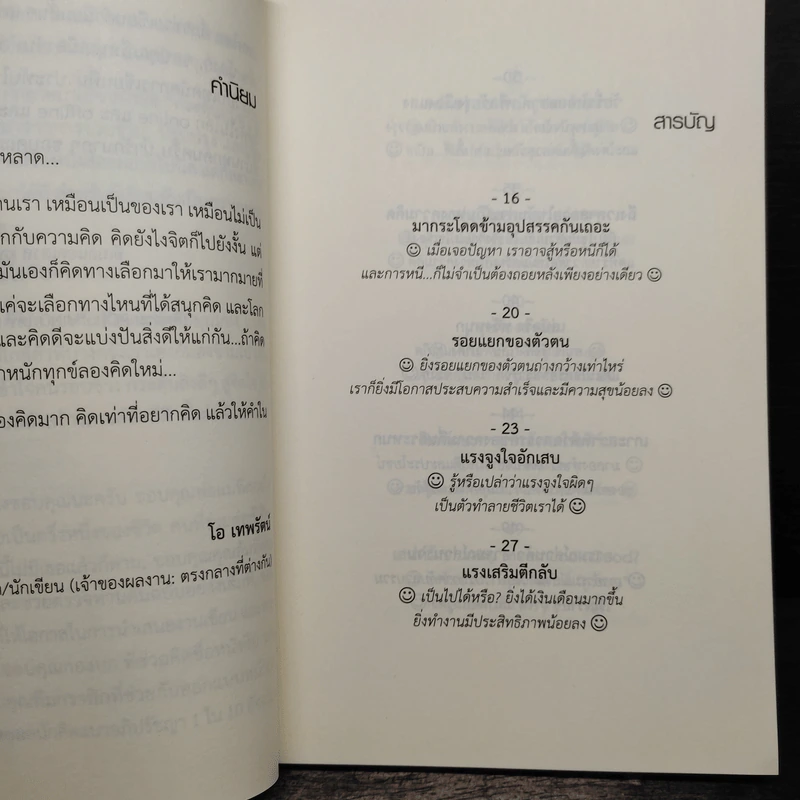 คำนิยม
หลาด...
านเรา เหมือนเป็นของเรา เหมือนไม่เป็น
กกับความคิด คิดยังไงจิตก็ไปยังงั้น แต่
มันเองก็คิดทางเลือกมาให้เรามากมายที่
แค่จะเลือกทางไหนที่ได้สนุกคิด และโลก
และคิดดีจะแบ่งปันสิ่งดีให้แก่กัน...ถ้าคิด
าหนักทุกข์ลองคิดใหม่...
องคิดมาก คิดเท่าที่อยากคิด แล้วให้คำใน
โอ เทพรัตน์
/นักเขียน (เจ้าของผลงาน: ตรงกลางที่ต่างกัน)
สารบัญ
- 16 -
มากระโดดข้ามอุปสรรคกันเถอะ
☺ เมื่อเจอปัญหา เราอาจสู้หรือหนีก็ได้
และการหนี...ก็ไม่จำเป็นต้องถอยหลังเพียงอย่างเดียว ☺
- 20 -
รอยแยกของตัวตน
☺ ยิ่งรอยแยกของตัวตนถ่างกว้างเท่าไหร่
เราก็ยิ่งมีโอกาสประสบความสำเร็จและมีความสุขน้อยลง ☺
- 23 -
แรงจูงใจอักเสบ
☺ รู้หรือเปล่าว่าแรงจูงใจผิดๆ
เป็นตัวทำลายชีวิตเราได้ ☺
- 27 -
แรงเสริมตีกลับ
☺ เป็นไปได้หรือ? ยิ่งได้เงินเดือนมากขึ้น
ยิ่งทำงานมีประสิทธิภาพน้อยลง ☺